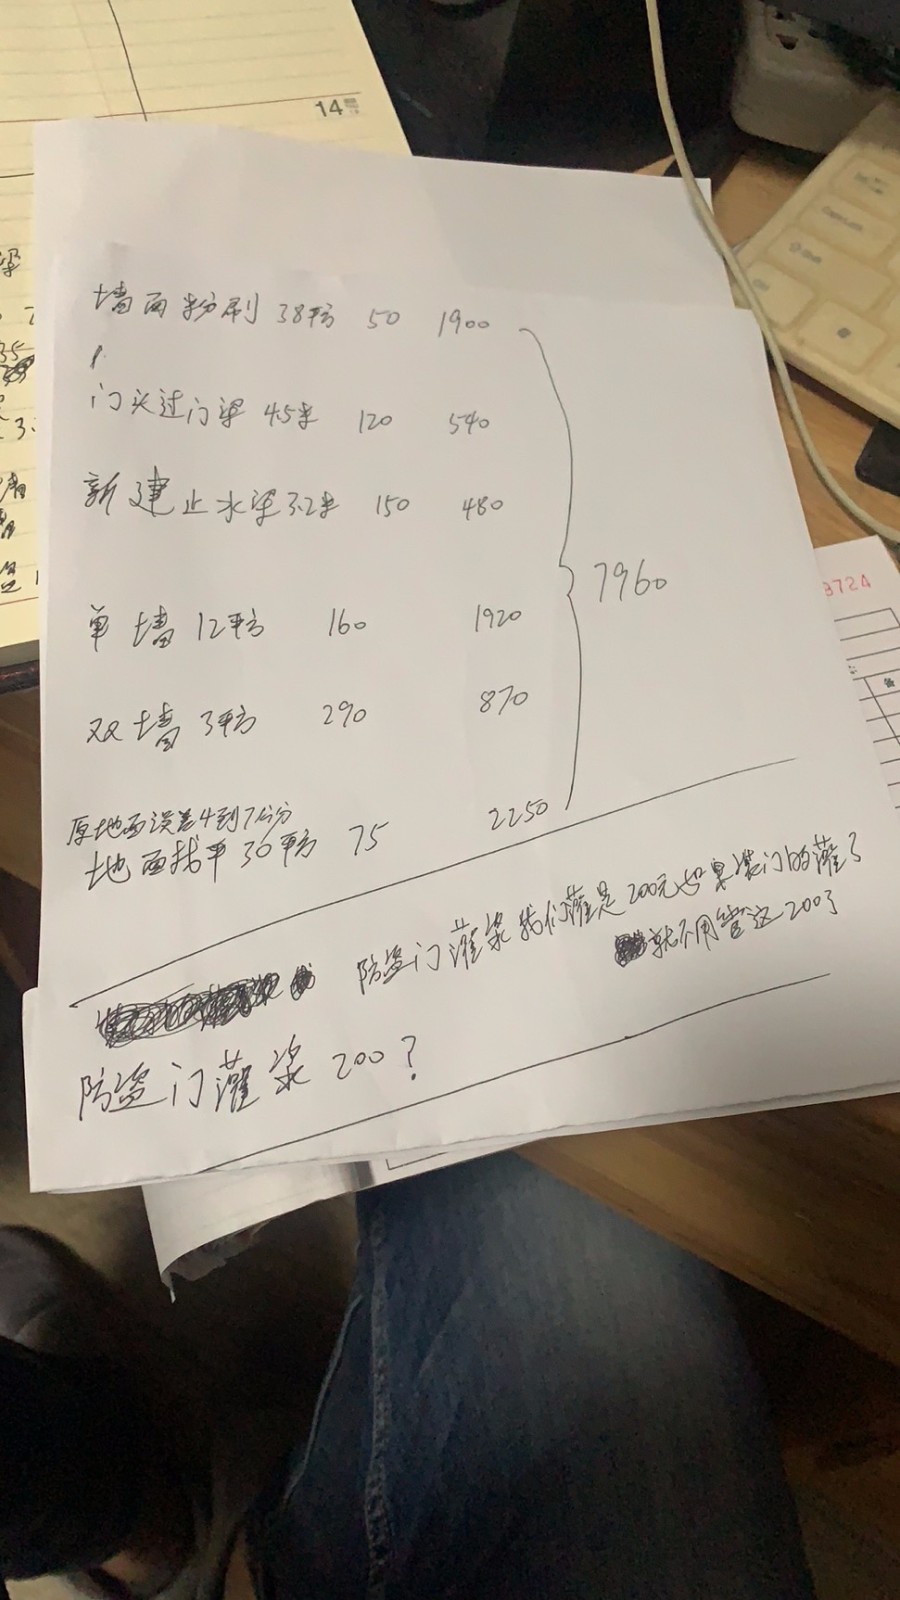 14
墙面粉刷 38平方 50 1900
门头过门梁 4.5米 120 540
新建止水梁 3.2米 150 480
单墙 12平方 160 1920
双墙 3平方 290 870
原地面误差4到7公分
地面找平 30平方 75 2250
7960
防盗门灌浆我们灌是200元如果装门的灌了
就不用管这200了
防盗门灌浆 200?
3724